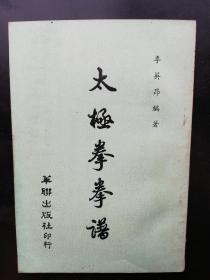 李英昂編著
太極拳拳譜
華聯出版社印行